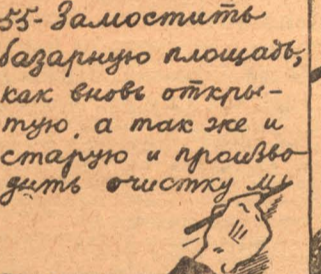 55- Замостить
базарную площадь,
как вновь откры-
тую, а так же и
старую и произво
дить очистку